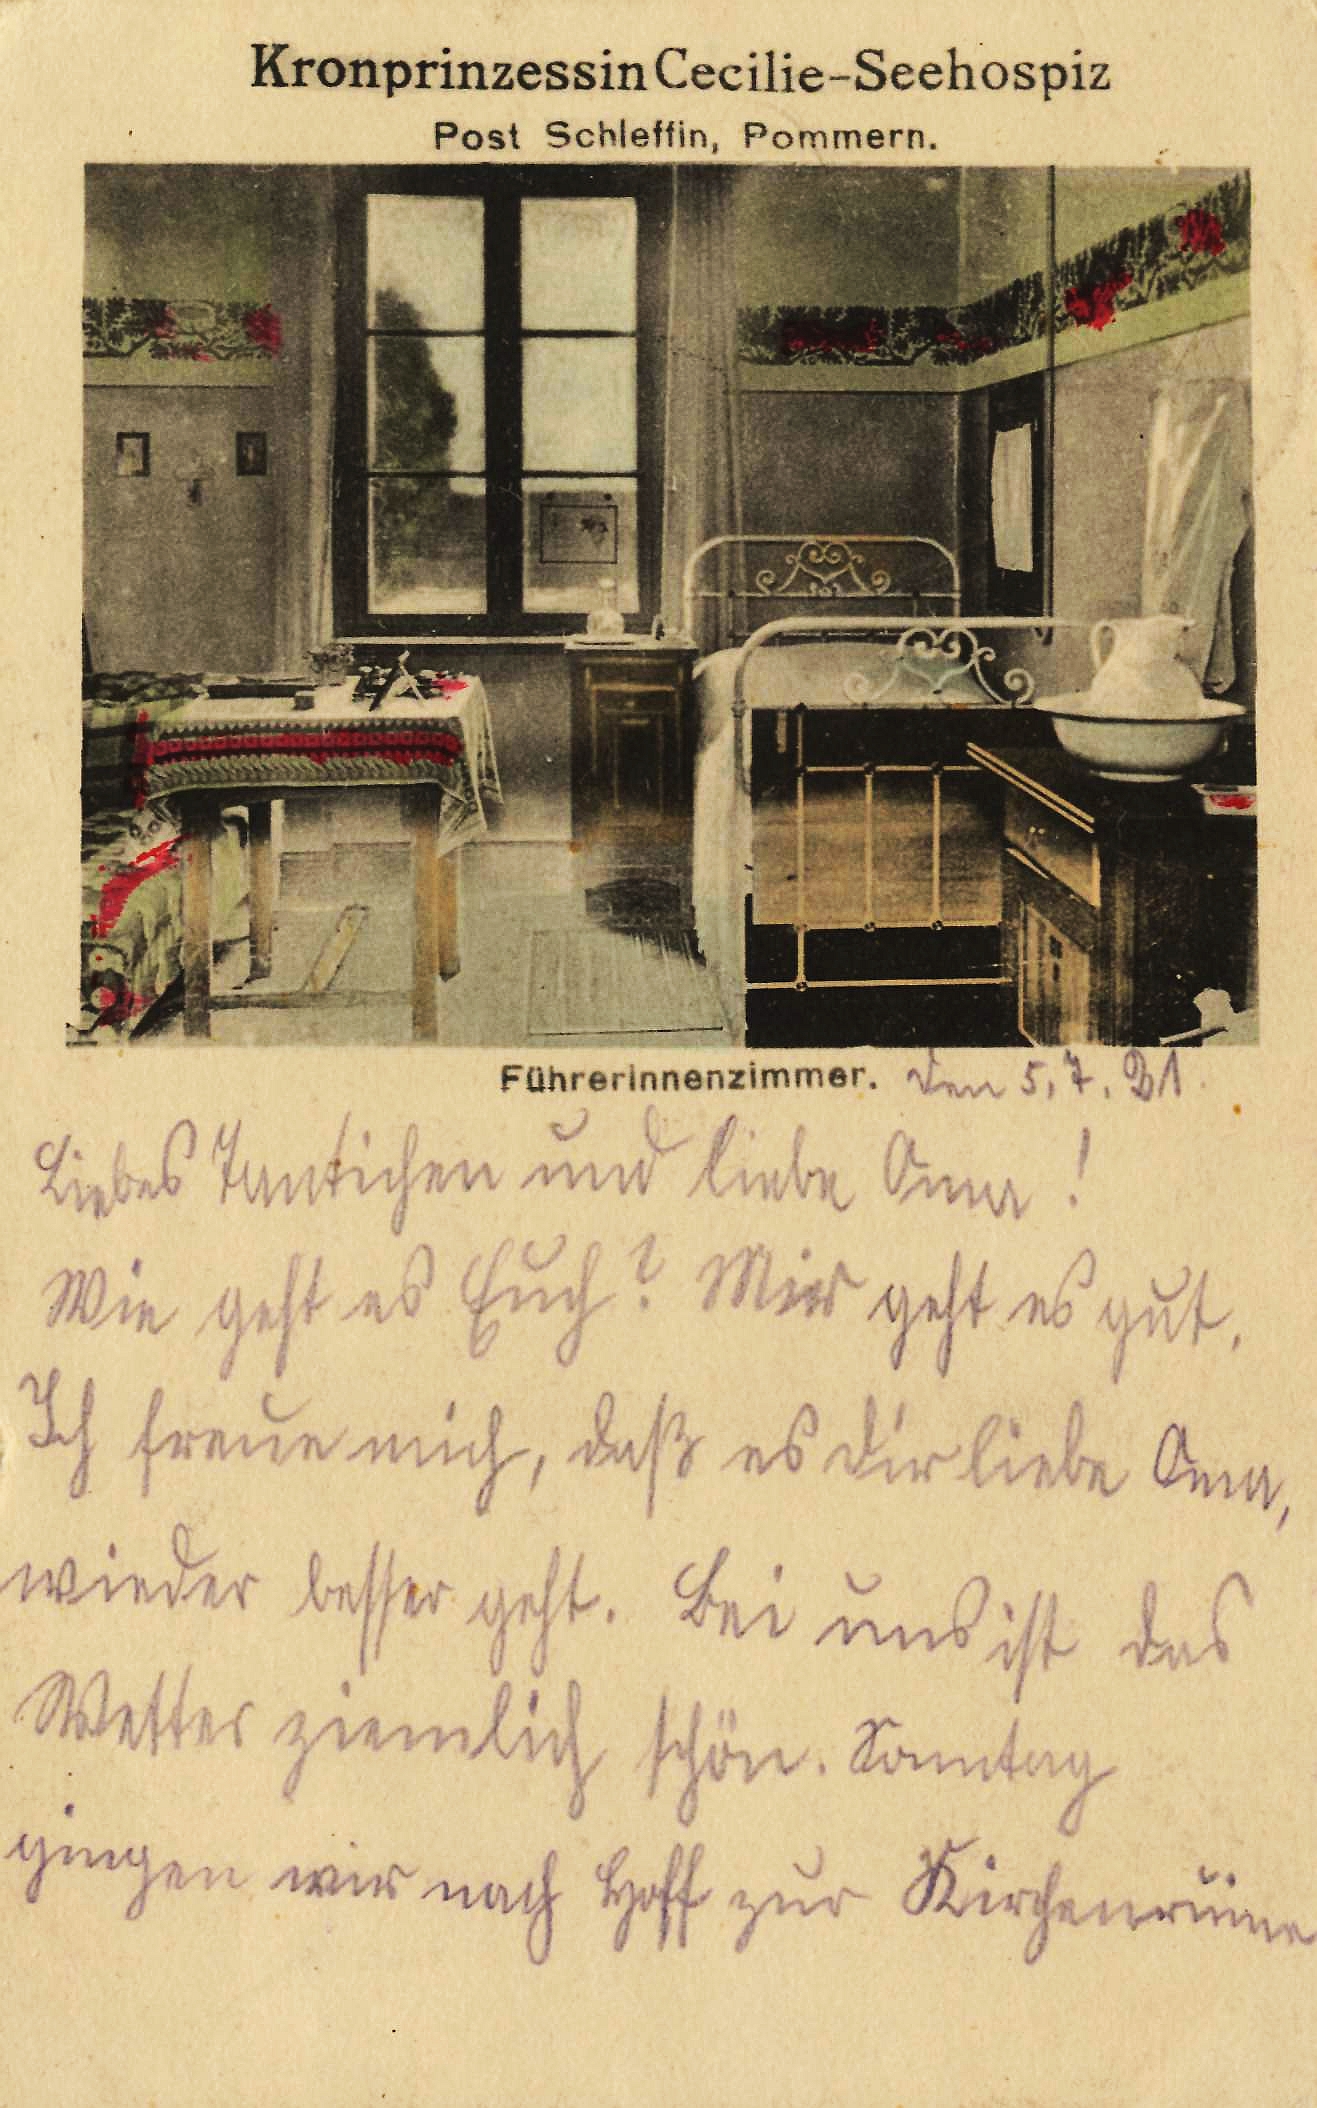 Kronprinzessin Cecilie-Seehospiz
Post Schleffin, Pommern.
Führerinnenzimmer. den 5. 7. 21.
Liebes Tantichen und liebe Oma!
Wie geht es Euch? Mir geht es gut.
Ich freue mich, daß es dir liebe Oma,
wieder besser geht. Bei uns ist das
Wetter ziemlich schön. Sonntag
gingen wir nach Hoff zur Kirchenruine